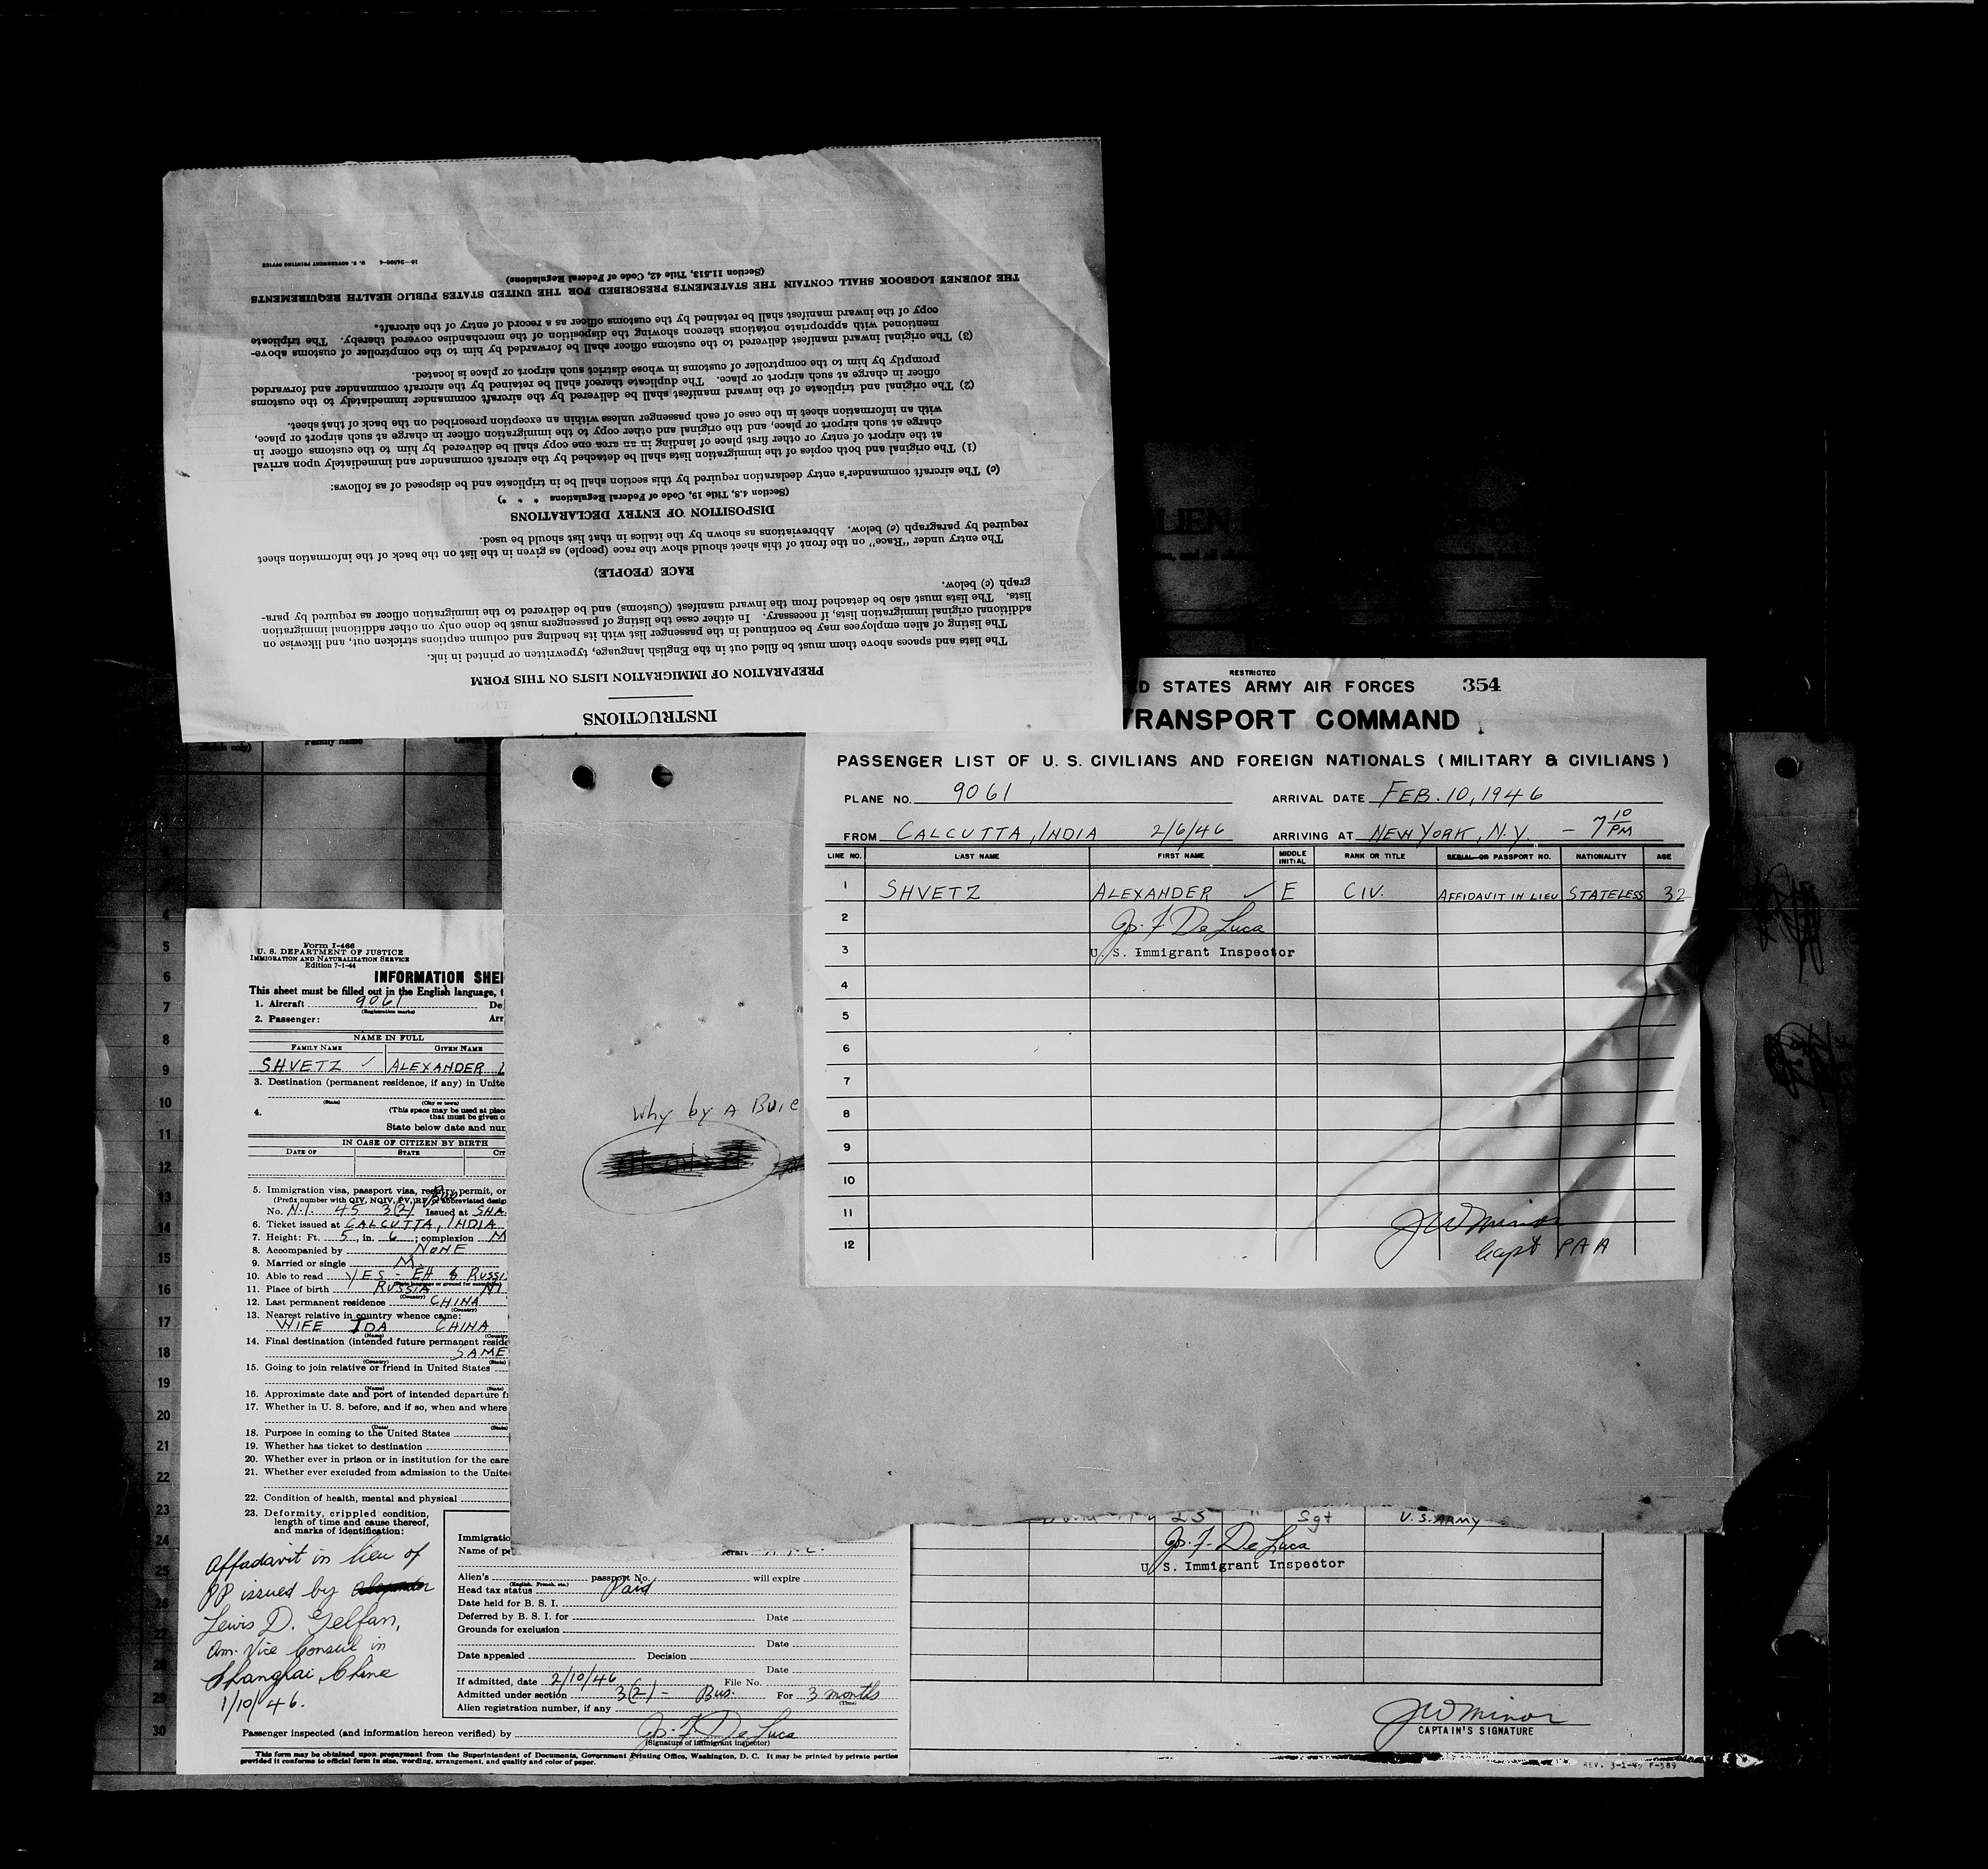 INSTRUCTIONS
PREPARATION OF IMMIGRATION LISTS ON THIS FORM
The lists and spaces above them must be filled out in the English language, typewritten or printed in ink.
The listing of alien employees may be continued in the passenger list with its heading and column captions stricken out, and likewise on
additional original immigration lists, if necessary. In either case the listing of passengers must be done only on other additional immigration
lists. The lists must also be detached from the inward manifest (Customs) and be delivered to the immigration officer as required by para-
graph (c) below.
RACE (PEOPLE)
The entry under "Race" on the front of this sheet should show the race (people) as given in the list on the back of the information sheet
required by paragraph (c) below. Abbreviations as shown by the italics in that list should be used.
DISPOSITION OF ENTRY DECLARATIONS
(Section 4.8, Title 19, Code of Federal Regulations * * *)
(c) The aircraft commander's entry declaration required by this section shall be in triplicate and be disposed of as follows:
(1) The original and both copies of the immigration lists shall be detached by the aircraft commander and immediately upon arrival
at the airport of entry or other first place of landing in an area one copy shall be delivered by him to the customs officer in
charge at such airport or place, and the original and other copy to the immigration officer in charge at such airport or place,
with an information sheet in the case of each passenger unless within an exception prescribed on the back of that sheet.
(2) The original and triplicate of the inward manifest shall be delivered by the aircraft commander immediately to the customs
officer in charge at such airport or place. The duplicate thereof shall be retained by the aircraft commander and forwarded
promptly by him to the comptroller of customs in whose district such airport or place is located.
(3) The original inward manifest delivered to the customs officer shall be forwarded by him to the comptroller of customs above-
mentioned with appropriate notations thereon showing the disposition of the merchandise covered thereby. The triplicate
copy of the inward manifest shall be retained by the customs officer as a record of entry of the aircraft.
THE JOURNEY LOGBOOK SHALL CONTAIN THE STATEMENTS PRESCRIBED FOR THE UNITED STATES PUBLIC HEALTH REQUIREMENTS
(Section 11.513, Title 42, Code of Federal Regulations)
U. S. GOVERNMENT PRINTING OFFICE
RESTRICTED
D STATES ARMY AIR FORCES 354
TRANSPORT COMMAND
PASSENGER LIST OF U. S. CIVILIANS AND FOREIGN NATIONALS ( MILITARY & CIVILIANS )
PLANE NO. 9061 ARRIVAL DATE FEB. 10, 1946
FROM CALCUTTA, INDIA 2/6/46 ARRIVING AT NEW YORK, N.Y. - 7 10 PM
LINE NO. LAST NAME FIRST NAME MIDDLE INITIAL RANK OR TITLE SERIAL OR PASSPORT NO. NATIONALITY AGE
1 SHVETZ ALEXANDER ✓ E CIV. AFFIDAVIT IN LIEU STATELESS 32
2 Jos. F. De Luca
3 U. S. Immigrant Inspector
4
5
6
7
8
9
10
11 JW Minor
12 Capt PAA
Why by A
Form I-466
U. S. DEPARTMENT OF JUSTICE
IMMIGRATION AND NATURALIZATION SERVICE
Edition 7-1-44
INFORMATION SHE
This sheet must be filled out in the English language, t
1. Aircraft 9061 De
(Registration marks)
2. Passenger: Arr
NAME IN FULL
FAMILY NAME GIVEN NAME
SHVETZ ✓ ALEXANDER
3. Destination (permanent residence, if any) in Unite
(State) (City or town)
4. (This space may be used at plac
that must be given o
State below date and nur
IN CASE OF CITIZEN BY BIRTH
DATE OF STATE CIT
5. Immigration visa, passport visa, reentry permit, or
(Prefix number with QIV, NQIV, PV, RP, or abbreviated desig
No. N.I. 45 3(2) Issued at SHA
6. Ticket issued at CALCUTTA, INDIA
7. Height: Ft. 5, in. 6; complexion M
8. Accompanied by NONE
9. Married or single M.
10. Able to read YES - EH & RUSSI
11. Place of birth RUSSIA
(Country)
12. Last permanent residence CHINA
(Country)
13. Nearest relative in country whence came:
WIFE IDA CHINA
(Name) (Country
14. Final destination (intended future permanent reside
SAME
(Country) (State)
15. Going to join relative or friend in United States
(Name) (State)
16. Approximate date and port of intended departure f
17. Whether in U. S. before, and if so, when and where
(Date) (State)
18. Purpose in coming to the United States
19. Whether has ticket to destination
20. Whether ever in prison or in institution for the care
21. Whether ever excluded from admission to the Unite
22. Condition of health, mental and physical
23. Deformity, crippled condition,
length of time and cause thereof,
and marks of identification:
Affadavit in lieu of
PP issued by
Lewis D. Gelfan,
Am. Vice Consul in
Shanghai, China
1/10/46.
Immigratio
Name of pe
Alien's passport No. will expire
(English, French, etc.)
Head tax status Paid
Date held for B. S. I.
Deferred by B. S. I. for Date
Grounds for exclusion
Date
Date appealed Decision
Date
If admitted, date 2/10/46 File No.
Admitted under section 3(2) - Bus. For 3 months
(Time)
Alien registration number, if any
Passenger inspected (and information hereon verified) by Jos. F. De Luca
(Signature of immigrant inspector)
This form may be obtained upon prepayment from the Superintendent of Documents, Government Printing Office, Washington, D. C. It may be printed by private parties
provided it conforms to official form in size, wording, arrangement, and quality and color of paper.
25 " Sgt U.S. ARMY
Jos. F. De Luca
U. S. Immigrant Inspector
JW Minor
CAPTAIN'S SIGNATURE
REV. 3-1-45 F-589
Family Name
5
6
7
8
9
10
11
12
13
14
15
16
17
18
19
20
21
22
23
24
25
26
27
28
29
30